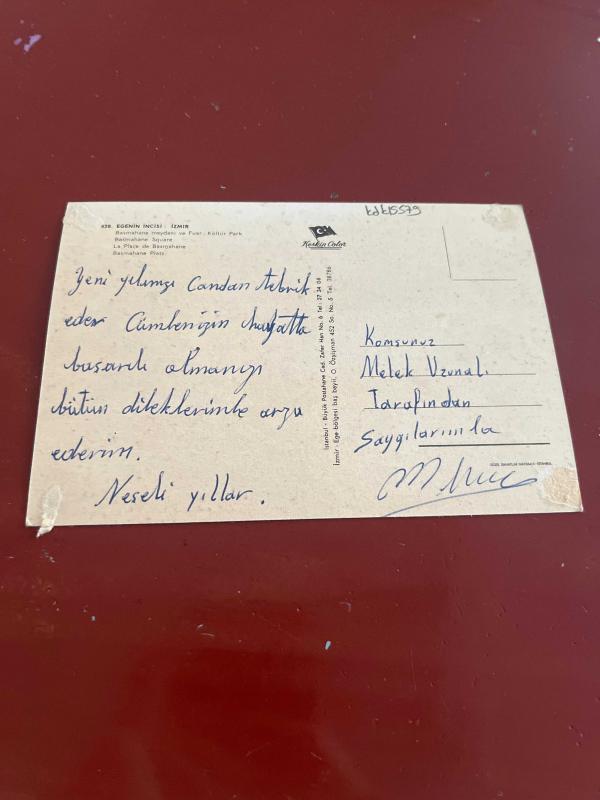 kdk15579
628. EGENİN İNCİSİ : İZMİR
Basmahane meydanı ve Fuar - Kültür Park
Basmahane Square
La Place de Basmahane
Basmahane Platz
Keskin Color
Yeni yılınızı Candan tebrik
eder Cümlenizin hayatta
başarılı olmanızı
bütün dileklerimle arzu
ederim.
Neşeli yıllar.
İstanbul - Büyük Postahane Cad. Zafer Han No. 6 Tel : 27 24 04
İzmir - Ege bölgesi baş bayii, O. Özpişman 452 So. No. 5 Tel. 38786
Komşunuz
Melek Uzunalı
Tarafından
Saygılarımla